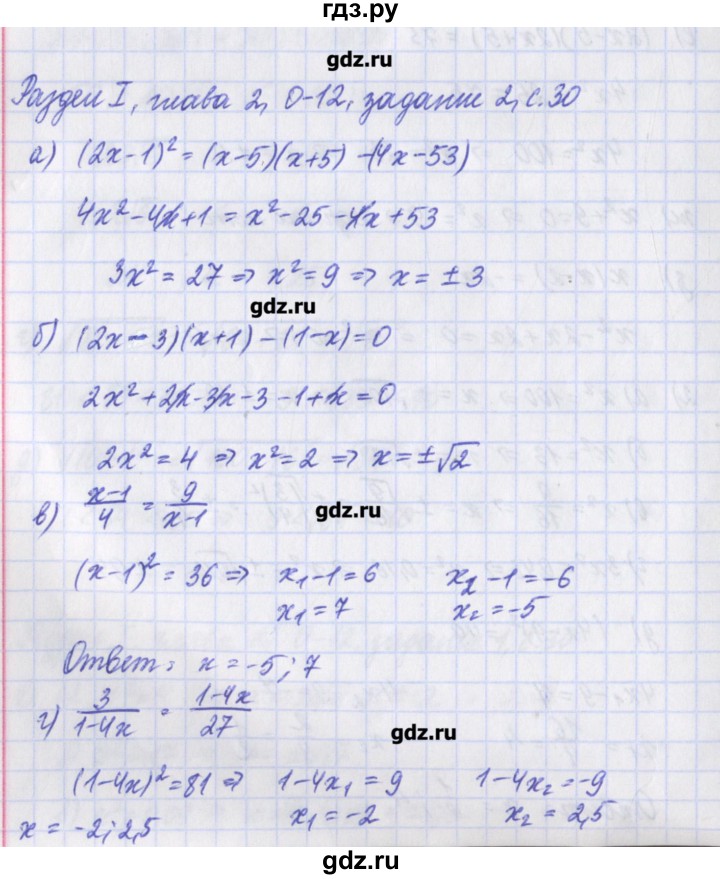 гдз.ру
gdz.ru
Раздел I, глава 2, О-12, задание 2, с.30
а) (2x-1)² = (x-5)(x+5) -(4x-53)
4x²-4x+1 = x²-25-4x+53
3x² = 27 ⇒ x²=9 ⇒ x=±3
gdz.ru
б) (2x-3)(x+1)-(1-x)=0
2x²+2x-3x-3-1+x=0
2x²=4 ⇒ x²=2 ⇒ x=±√2
в) (x-1)/4 = 9/(x-1)
gdz.ru
(x-1)²=36 ⇒ x₁-1=6 x₂-1=-6
x₁=7 x₂=-5
Ответ: x=-5; 7
г) 3/(1-4x) = (1-4x)/27
gdz.ru
(1-4x)²=81 ⇒ 1-4x₁=9 1-4x₂=-9
x₁=-2 x₂=2,5
x = -2; 2,5
gdz.ru